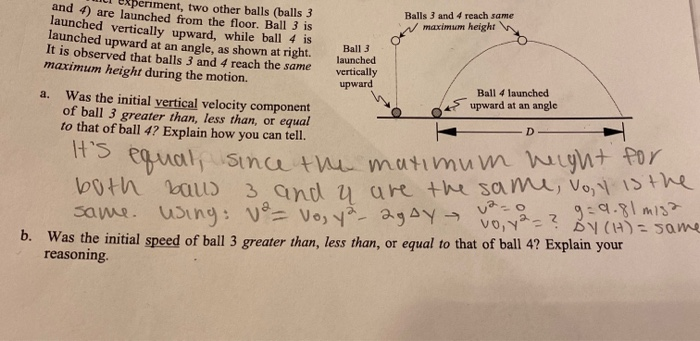 experiment, two other balls (balls 3
and 4) are launched from the floor. Ball 3 is
launched vertically upward, while ball 4 is
launched upward at an angle, as shown at right.
It is observed that balls 3 and 4 reach the same
maximum height during the motion.
Balls 3 and 4 reach same
maximum height
Ball 3
launched
vertically
upward
Ball 4 launched
upward at an angle
D
a. Was the initial vertical velocity component
of ball 3 greater than, less than, or equal
to that of ball 4? Explain how you can tell.
It's equal, since the maximum height for
both balls 3 and 4 are the same, v₀,y is the
same. using: v² = v₀,y² - 2gΔy → v² = 0 g = 9.81 m/s²
v₀,y² = ? Δy (H) = same
b. Was the initial speed of ball 3 greater than, less than, or equal to that of ball 4? Explain your
reasoning.